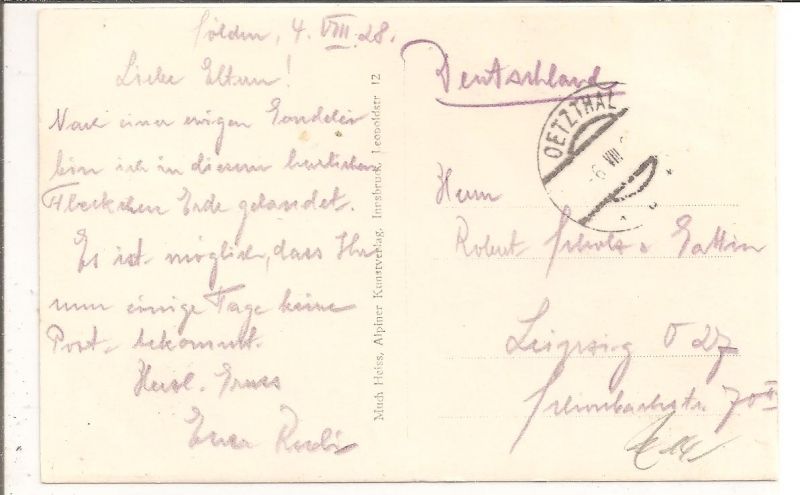 Sölden, 4. VIII. 28.
Liebe Eltern!
Nach einer ewigen Gondelei
bin ich in diesem herrlichen
Fleckchen Erde gelandet.
Es ist möglich, dass Ihr
nun einige Tage keine
Post bekommt.
Herzl. Gruss
Euer Rudi
Much Heiss, Alpiner Kunstverlag, Innsbruck, Leopoldstr 12
Deutschland
OETZTHAL
-6 VIII
Herrn
Robert Scholz u Gattin
Leipzig O 27
Schönbachstr. 70 II